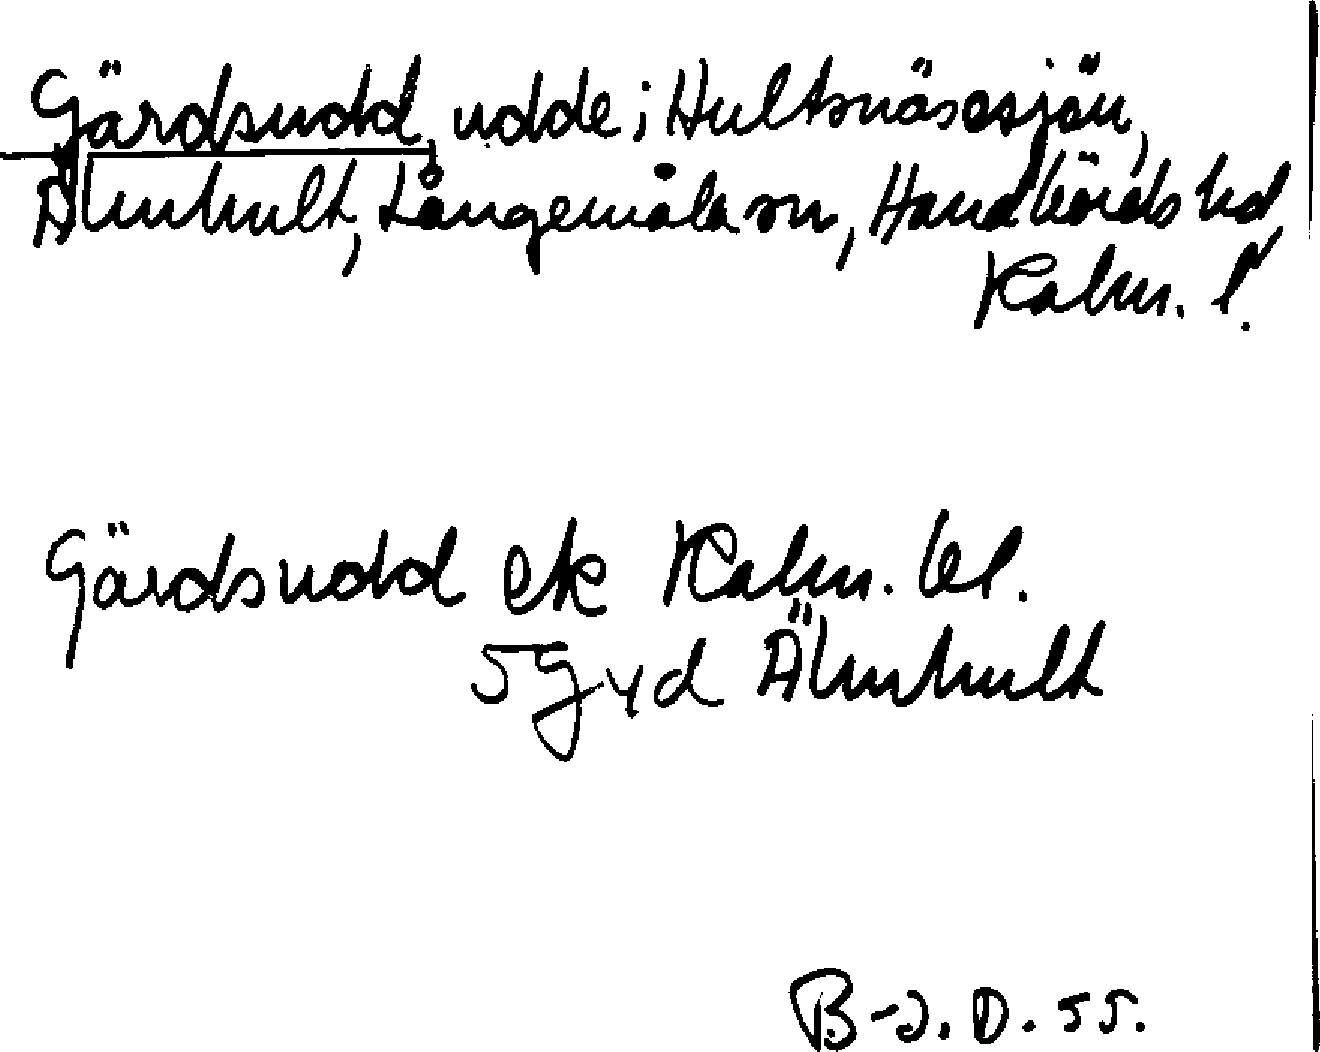 Gärdsudd, udde i Hultsnäsasjön,
Älmhult, Långemåla sn, Handbörds hd,
Kalm. l.
Gärdsudd ek Kalm. bl.
5g yd Älmhult
B-J. D. 55.